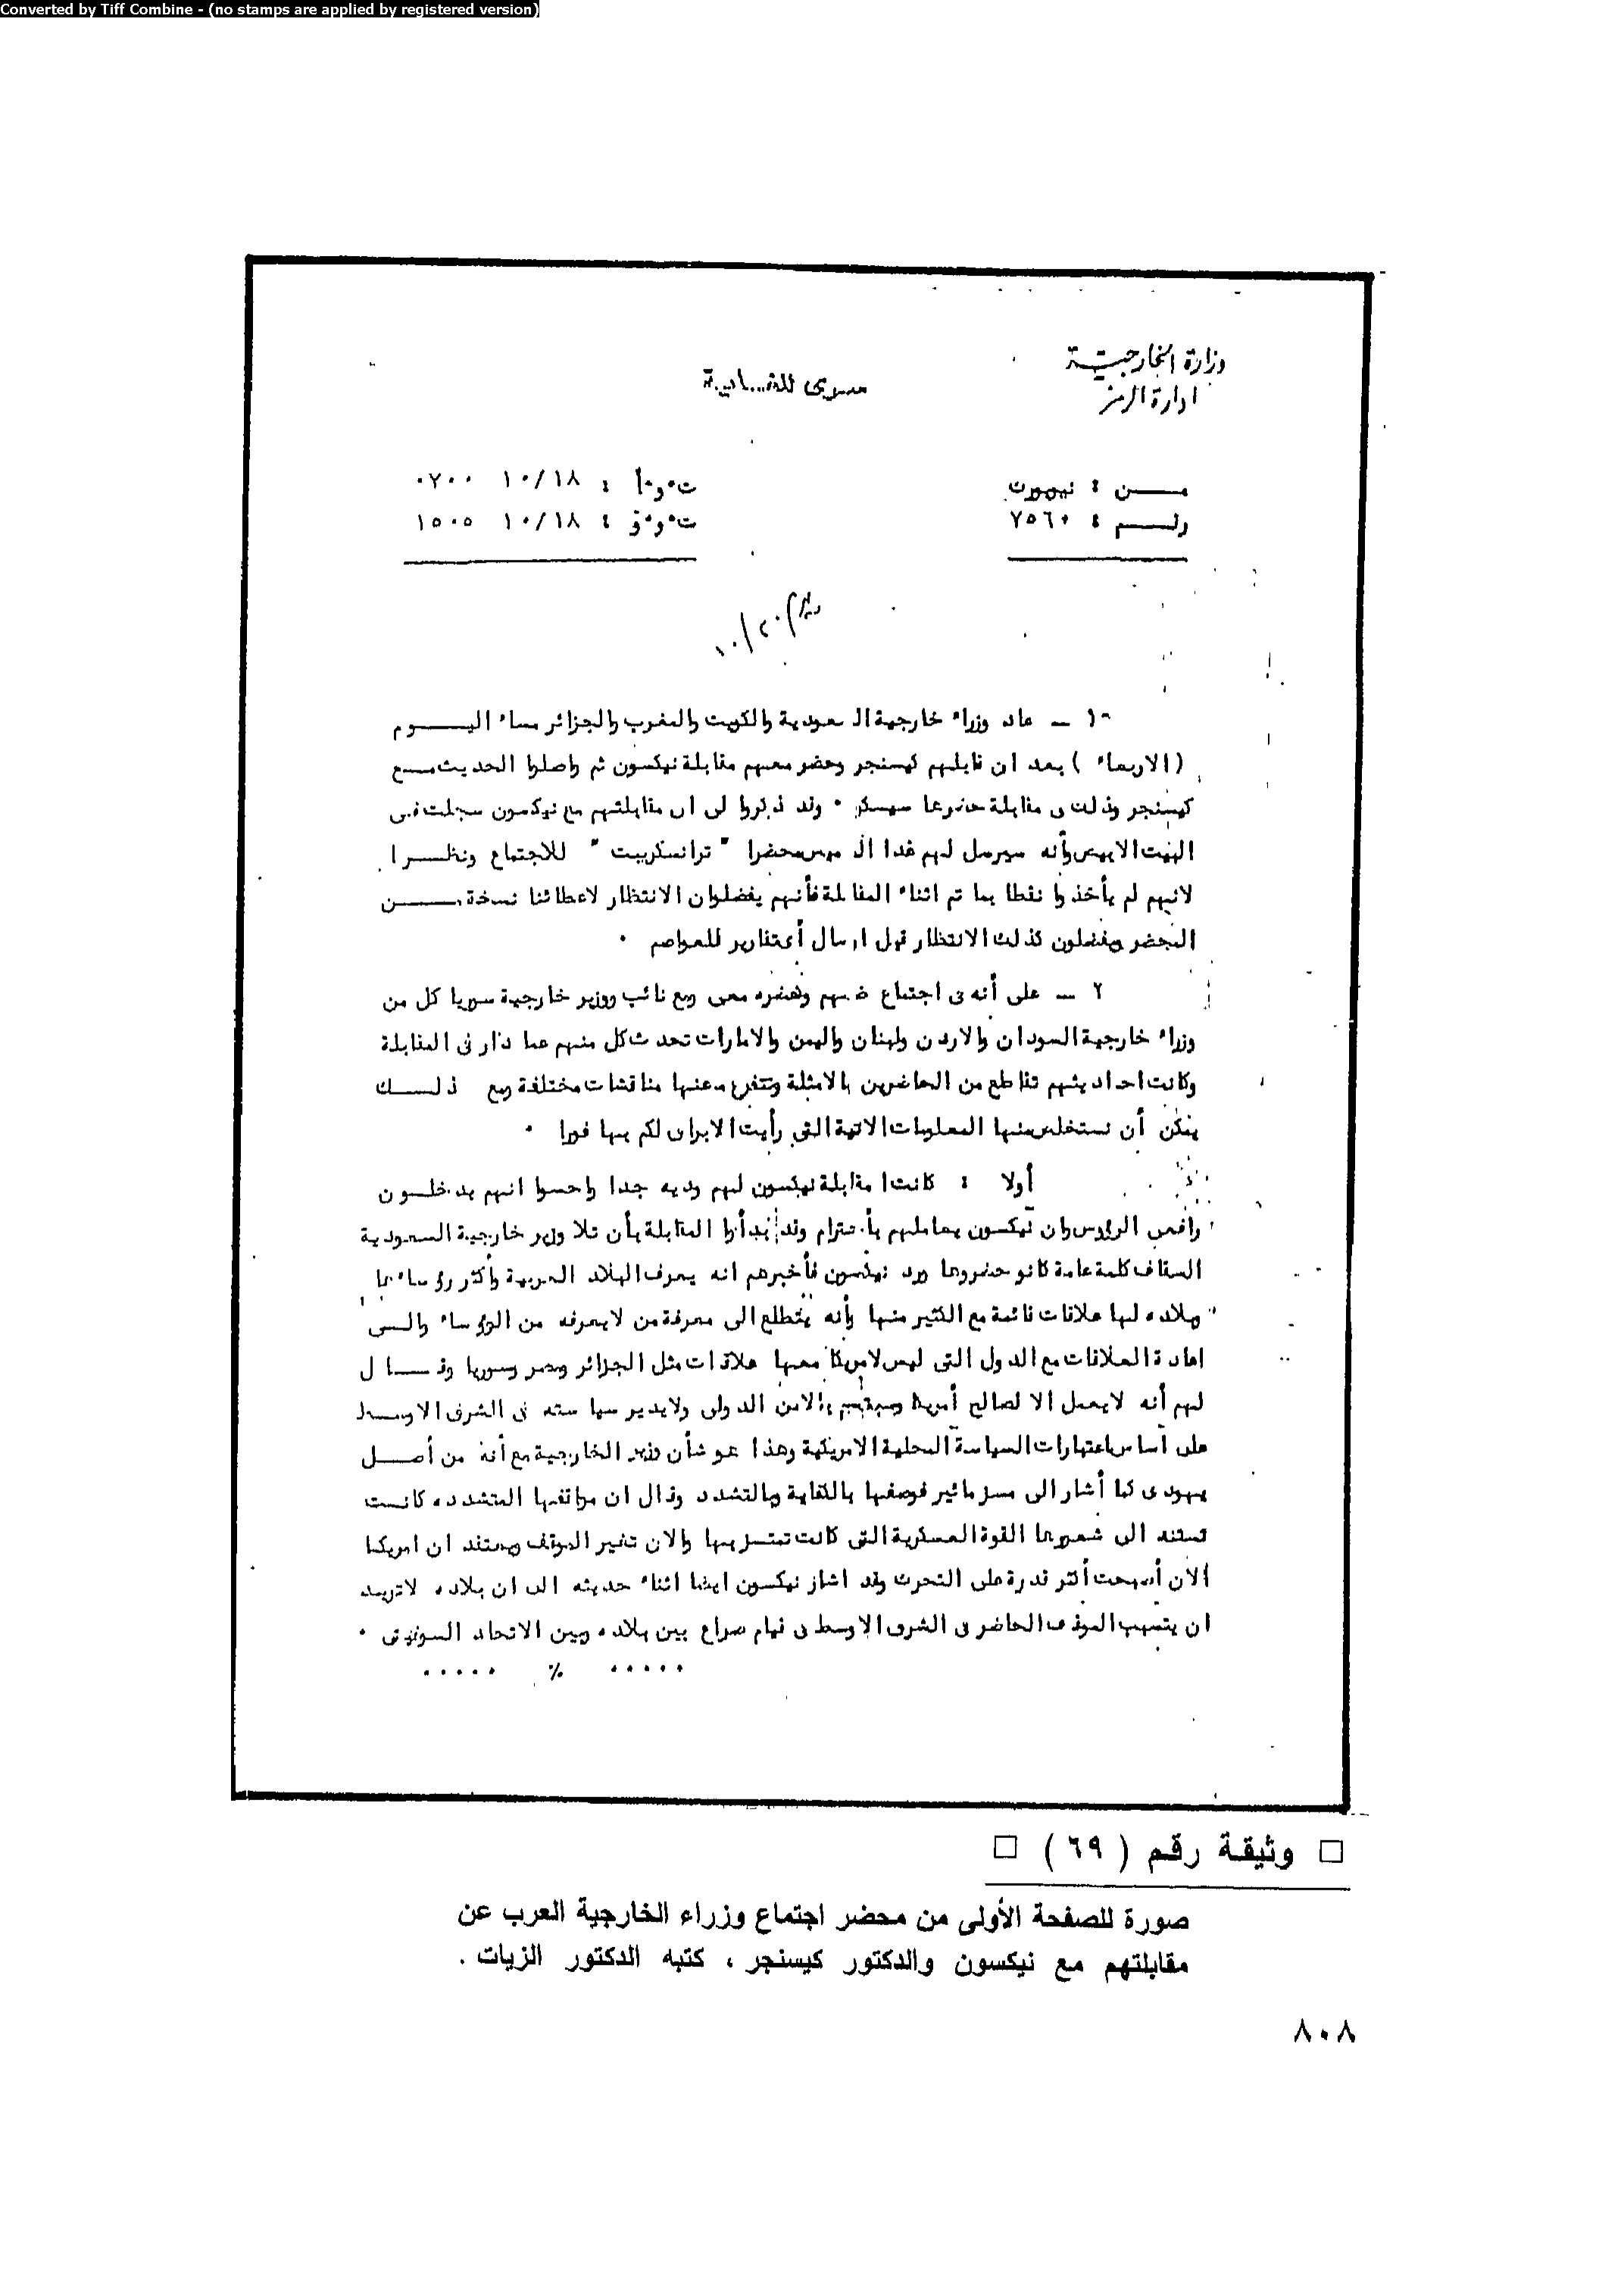 Converted by Tiff Combine - (no stamps are applied by registered version)
وزارة الخارجيـــة
ادارة الرمز
سرى للغـــايـة
مــــن : نيويورك
رقــــم : ٧٥٦٠
ت٠و٠أ : ١٠/١٨ ٠٧٠٠
ت٠و٠ق : ١٠/١٨ ١٥٠٥
١٠/٢٠
١ ــ عاد وزراء خارجية السعودية والكويت والمغرب والجزائر مساء اليـــــوم
(الاربعاء ) بعد ان قابلهم كيسنجر وحضر معهم مقابلة نيكسون ثم واصلوا الحديث مـــع
كيسنجر وذلك فى مقابلة حضرها سيسكو ٠ وقد ذكروا لى ان مقابلتهم مع نيكسون سجلت فى
البيت الابيض وأنه سيرسل لهم غدا محضرا " ترانسكريبت " للاجتماع ونظـــرا
لانهم لم يأخذوا نقطا بما تم اثناء المقابلة فأنهم يفضلوان الانتظار لاعطائنا نسخة مـــــن
المحضر ويفضلون كذلك الانتظار قبل ارسال أى تقارير للعواصم ٠
٢ ــ على أنه فى اجتماع ضمهم وحضره معى ومع نائب ووزير خارجية سوريا كل من
وزراء خارجية السودان والاردن ولبنان واليمن والامارات تحدث كل منهم عما دار فى المقابلة
وكانت احاديثهم تقاطع من الحاضرين بالاسئلة وتتفرع عنها مناقشات مختلفة ومع ذلـــك
يمكن أن نستخلص منها المعلومات الاتية التى رأيت الابراق لكم بها فورا ٠
أولا : كانت مقابلة نيكسون لهم وديه جدا واحسوا انهم يدخلــون
رافعى الرؤوس وان نيكسون يعاملهم بأحترام وقد بدأوا المقابلة بأن تلا وزير خارجية السعودية
السقاف كلمة عامة كانو حضروها ورد نيكسون فأخبرهم انه يعرف البلاد العربية وأكثر رؤساءها
وبلاده لها علاقات قائمة مع الكثير منها وأنه يتطلع الى معرفة من لايعرفه من الرؤساء والــى
اعادة العلاقات مع الدول التى ليس لامريكا معها علاقات مثل الجزائر ومصر وسوريا وقـــال
لهم أنه لايعمل الا لصالح أمريكا ويهتم بالامن الدولى ولايدير سياسته فى الشرق الاوسـط
على أساس اعتبارات السياسة المحلية الامريكية وهذا هو شأن وزير الخارجية مع أنه من أصــل
يهودى كما أشار الى مسز مائير فوصفها بالكفاية وبالتشدد وقال ان مواقفها المتشدده كانـت
تستند الى شعورها القوة العسكرية التى كانت تمتـــز بها والان تغير الموقف ويعتقد ان امريكـا
الان أصبحت أكثر قدرة على التحرك وقد اشار نيكسون ايضا اثناء حديثه الى ان بلاده لاتريـد
ان يتسبب الموقف الحاضر فى الشرق الاوسط فى قيام صراع بين بلاده وبين الاتحاد السوفيتى ٠
٠٠٠٠٠ ٪ ٠٠٠٠٠
□ وثيقة رقم ( ٦٩ ) □
صورة للصفحة الأولى من محضر اجتماع وزراء الخارجية العرب عن
مقابلتهم مع نيكسون والدكتور كيسنجر ، كتبه الدكتور الزيات .
٨٠٨